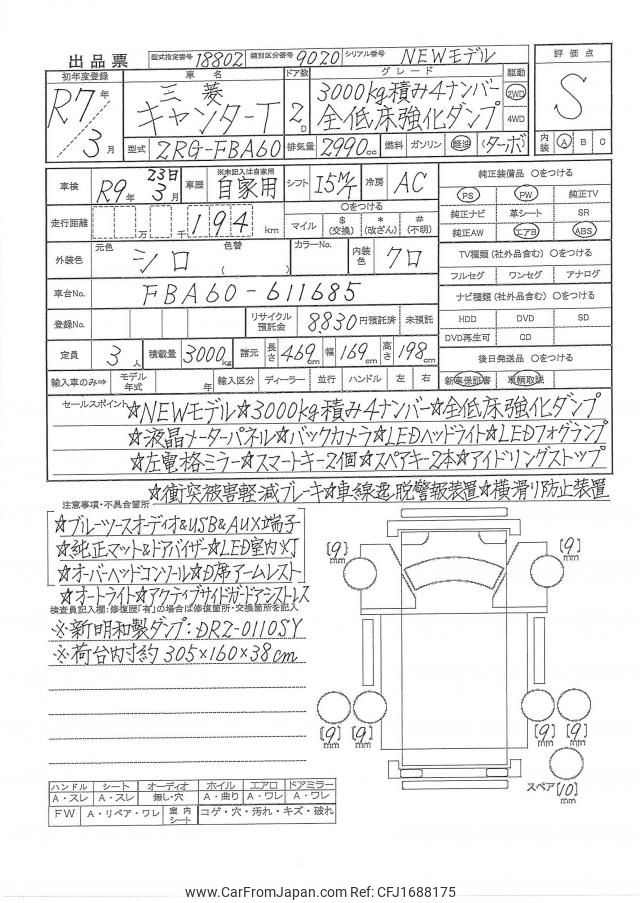 出品票 型式指定番号 18802 類別区分番号 9020 シリアル番号 NEWモデル
初年度登録 車名 ドア数 グレード 駆動 評価点
R7年 3月 三菱 キャンターT 2D 3000kg積み4ナンバー 全低床強化ダンプ 2WD 4WD S
型式 2RG-FBA60 排気量 2990cc 燃料 ガソリン 軽油 (ターボ) 内装 A B C
車検 R9年 23日 3月 車歴 ※未記入は自家用 自家用 シフト I5M/T 冷房 AC
純正装備品 〇をつける
PS PW 純正TV
純正ナビ 革シート SR
純正AW エアB ABS
走行距離 万 千 194 km
〇をつける
マイル $(交換) *(改ざん) #(不明)
外装色 元色 シロ 色替 ( ) カラーNo. 内装色 クロ
TV種類(社外品含む) 〇をつける
フルセグ ワンセグ アナログ
車台No. FBA60-611685
ナビ種類(社外品含む) 〇をつける
HDD DVD SD
DVD再生可 CD
登録No. リサイクル預託金 8,830円預託済 未預託
定員 3人 積載量 3000kg 諸元 長さ 469cm 幅 169cm 高さ 198cm
後日発送品 〇をつける
新車保証書 車輌取説
輸入車のみ⇒ モデル年式 年 輸入区分 ディーラー 並行 ハンドル 左 右
セールスポイント ☆NEWモデル☆3000kg積み4ナンバー☆全低床強化ダンプ
☆液晶メーターパネル☆バックカメラ☆LEDヘッドライト☆LEDフォグランプ
☆左電格ミラー☆スマートキー2個☆スペアキー2本☆アイドリングストップ
☆衝突被害軽減ブレーキ☆車線逸脱警報装置☆横滑り防止装置
注意事項・不具合箇所
☆ブルーツースオーディオ&USB&AUX端子
☆純正マット&ドアバイザー☆LED室内灯
☆オーバーヘッドコンソール☆D席アームレスト
☆オートライト☆アクティブサイドガードアシストレス
検査員記入欄:修復歴『有』の場合は修復箇所・交換箇所を記入
※新明和製ダンプ:DR2-0110SY
※荷台内寸約 305×160×38cm
[9]mm [9]mm
[9]mm [9]mm [9]mm [9]mm
スペア [10]mm
ハンドル シート オーディオ ホイル エアロ ドアミラー
A・スレ A・スレ 無し・穴 A・曲り A・ワレ A・ワレ
FW A・リペア・ワレ 室内シート コゲ・穴・汚れ・キズ・破れ
www.CarFromJapan.com Ref: CFJ1688175